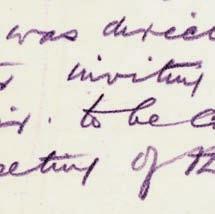 was direc
inviting
to be
eeting of